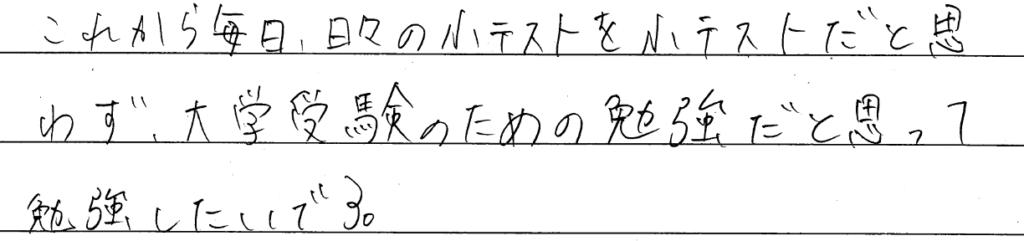 これから毎日、日々の小テストを小テストだと思
わず、大学受験のための勉強だと思って
勉強したいです。